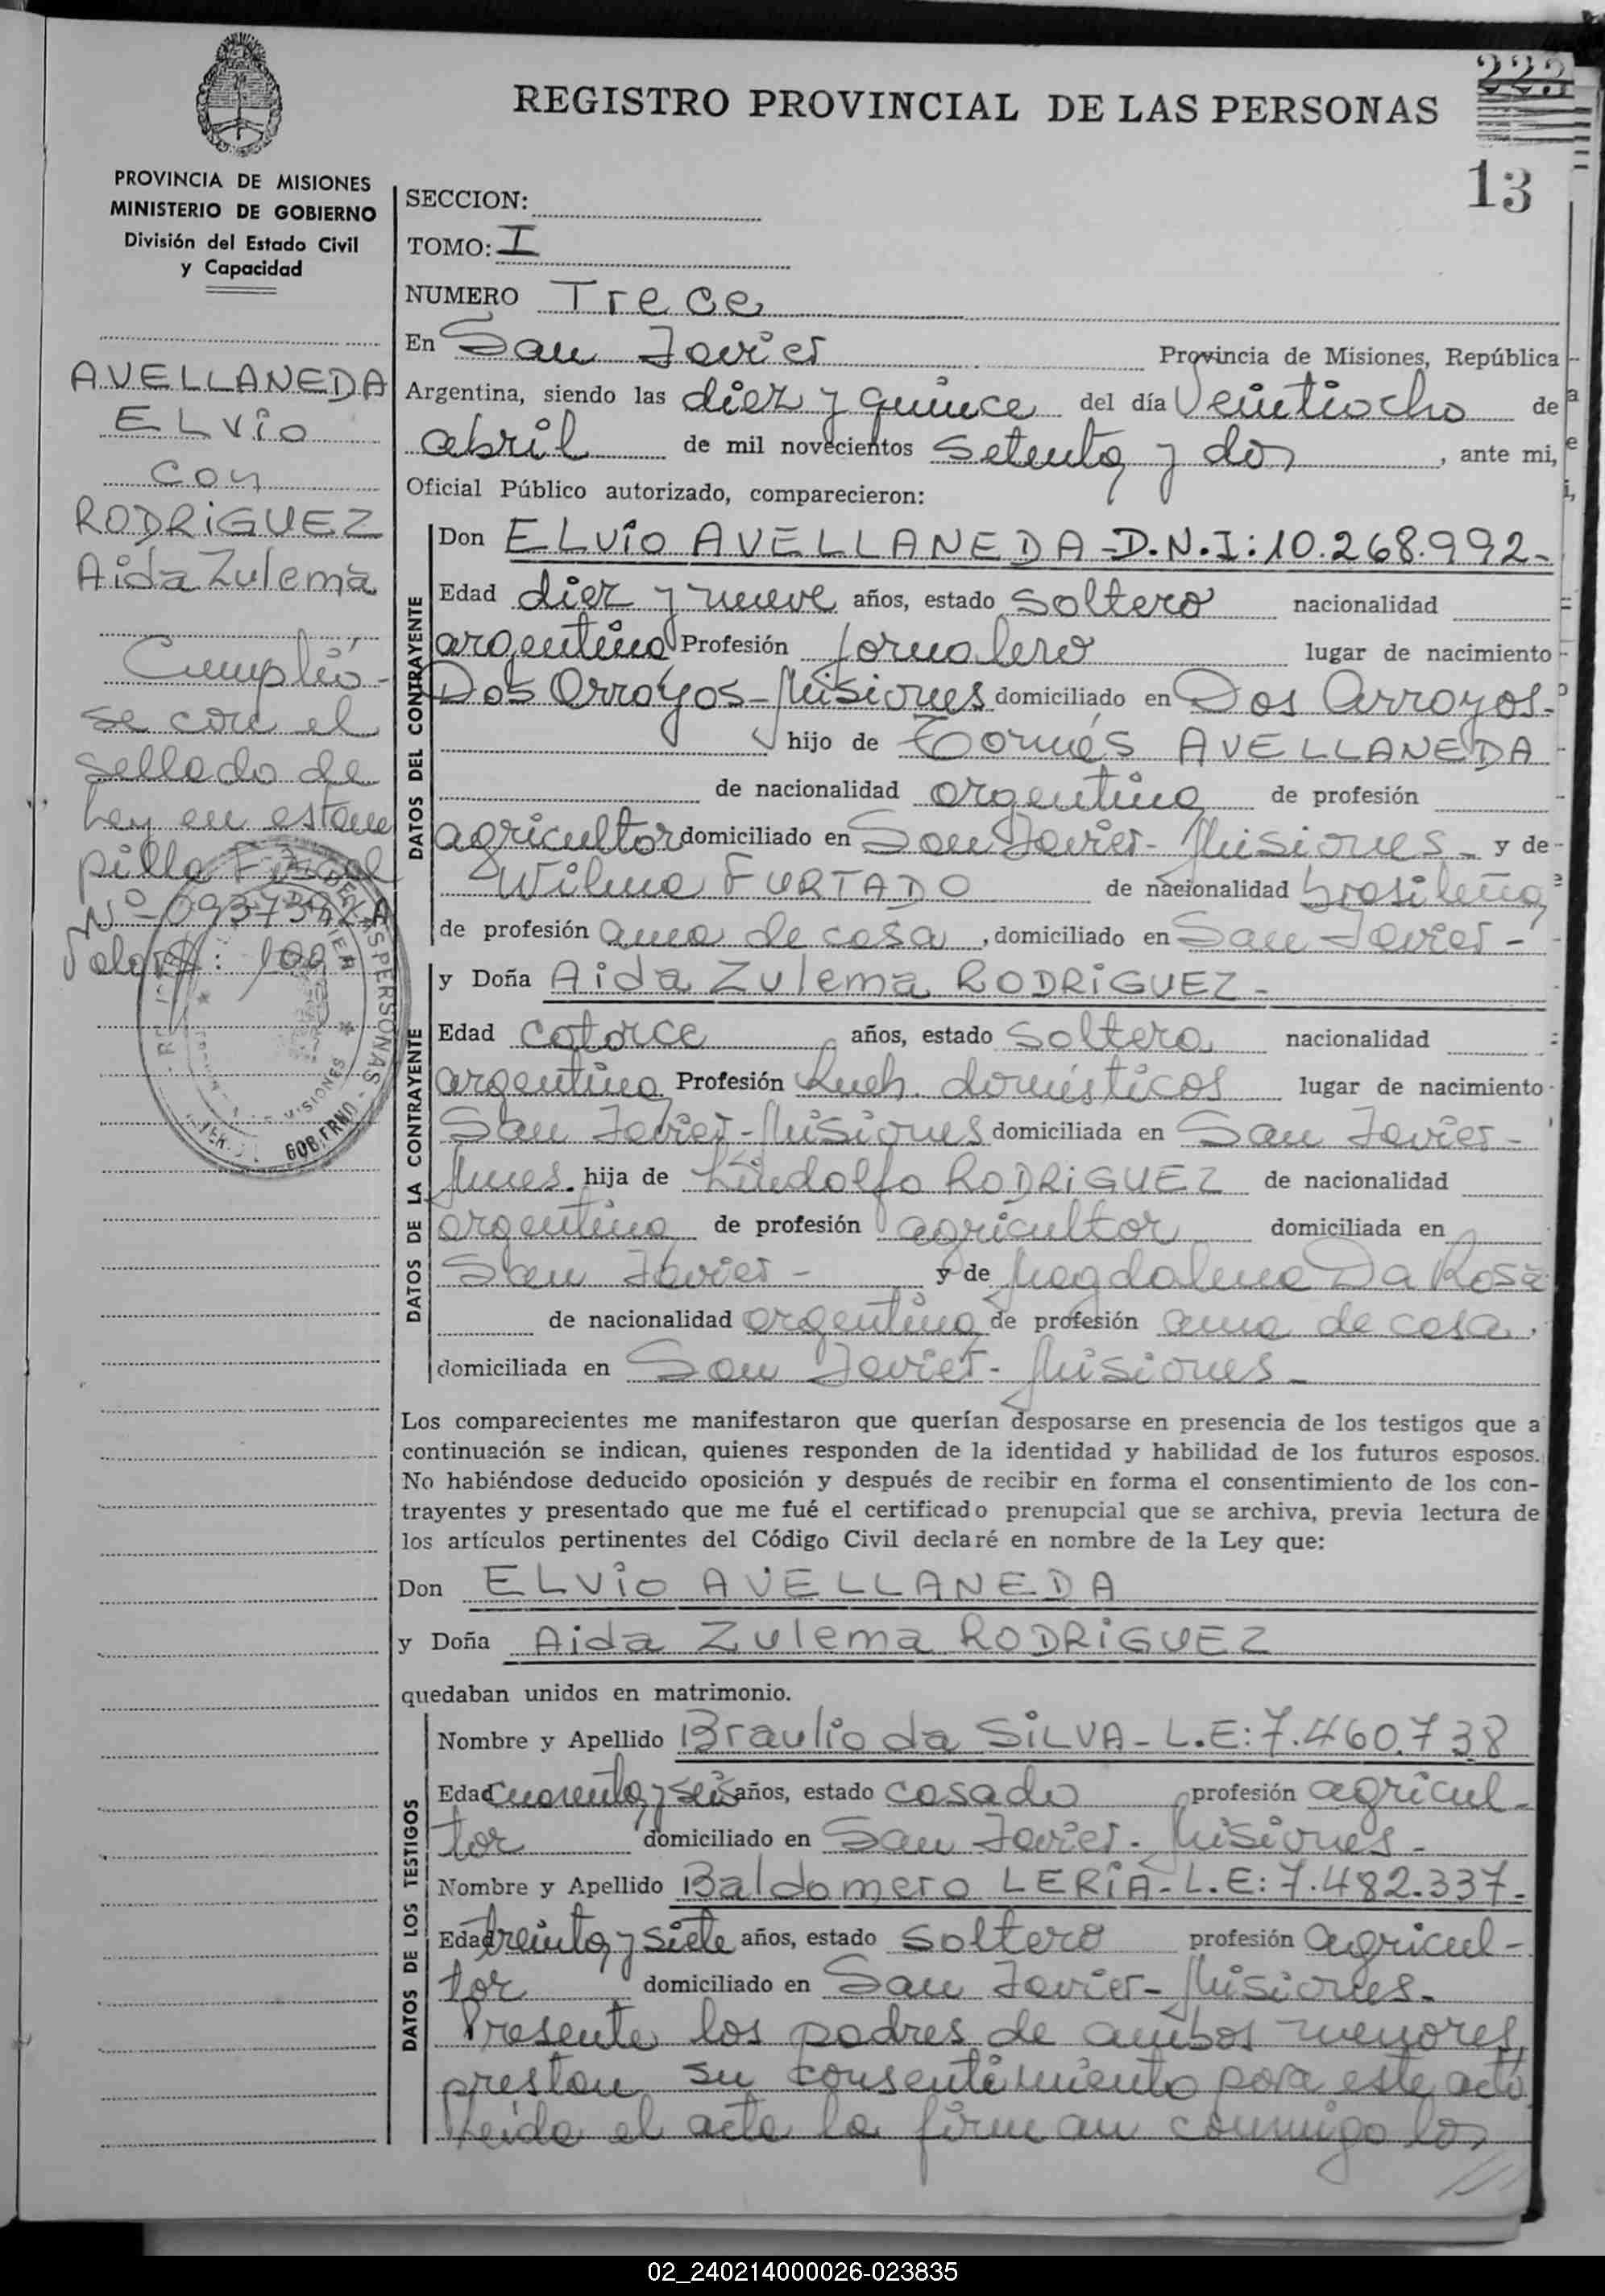 REGISTRO PROVINCIAL DE LAS PERSONAS
223
13
PROVINCIA DE MISIONES
MINISTERIO DE GOBIERNO
División del Estado Civil
y Capacidad
AVELLANEDA
ELVIO
con
RODRIGUEZ
Aida Zulema
Cumplió
se con el
sellado de
Ley en estam
pilla Fiscal
Nº 0937342A
Valor $: 100
SECCION:
TOMO: I
NUMERO Trece
En San Javier Provincia de Misiones, República
Argentina, siendo las diez y quince del día Veintiocho de
abril de mil novecientos setenta y dos, ante mi,
Oficial Público autorizado, comparecieron:
DATOS DEL CONTRAYENTE
Don ELVIO AVELLANEDA - D.N.I: 10.268.992-
Edad diez y nueve años, estado soltero nacionalidad
argentina Profesión Jornalero lugar de nacimiento
Dos Arroyos - Misiones domiciliado en Dos Arroyos-
hijo de Tomás AVELLANEDA
de nacionalidad argentina de profesión
agricultor domiciliado en San Javier - Misiones - y de
Wilma FURTADO de nacionalidad brasileña
de profesión ama de casa, domiciliado en San Javier -
DATOS DE LA CONTRAYENTE
y Doña Aida Zulema RODRIGUEZ -
Edad catorce años, estado soltera nacionalidad
argentina Profesión Queh. domésticos lugar de nacimiento
San Javier - Misiones domiciliada en San Javier -
Mnes. hija de Lindolfo RODRIGUEZ de nacionalidad
argentina de profesión agricultor domiciliada en
San Javier - y de Magdalena Da Rosa
de nacionalidad argentina de profesión ama de casa,
domiciliada en San Javier - Misiones -
Los comparecientes me manifestaron que querían desposarse en presencia de los testigos que a
continuación se indican, quienes responden de la identidad y habilidad de los futuros esposos.
No habiéndose deducido oposición y después de recibir en forma el consentimiento de los con-
trayentes y presentado que me fué el certificado prenupcial que se archiva, previa lectura de
los artículos pertinentes del Código Civil declaré en nombre de la Ley que:
Don ELVIO AVELLANEDA
y Doña Aida Zulema RODRIGUEZ
quedaban unidos en matrimonio.
DATOS DE LOS TESTIGOS
Nombre y Apellido Braulio da SILVA - L.E: 7.460.738
Edad cuarenta y seis años, estado casado profesión agricul-
tor domiciliado en San Javier - Misiones -
Nombre y Apellido Baldomero LERIA - L.E: 7.482.337-
Edad treinta y siete años, estado soltero profesión agricul-
tor domiciliado en San Javier - Misiones -
Presente los padres de ambos menores,
prestan su consentimiento para este acto.
Leida el acta la firman conmigo los
02_240214000026-023835